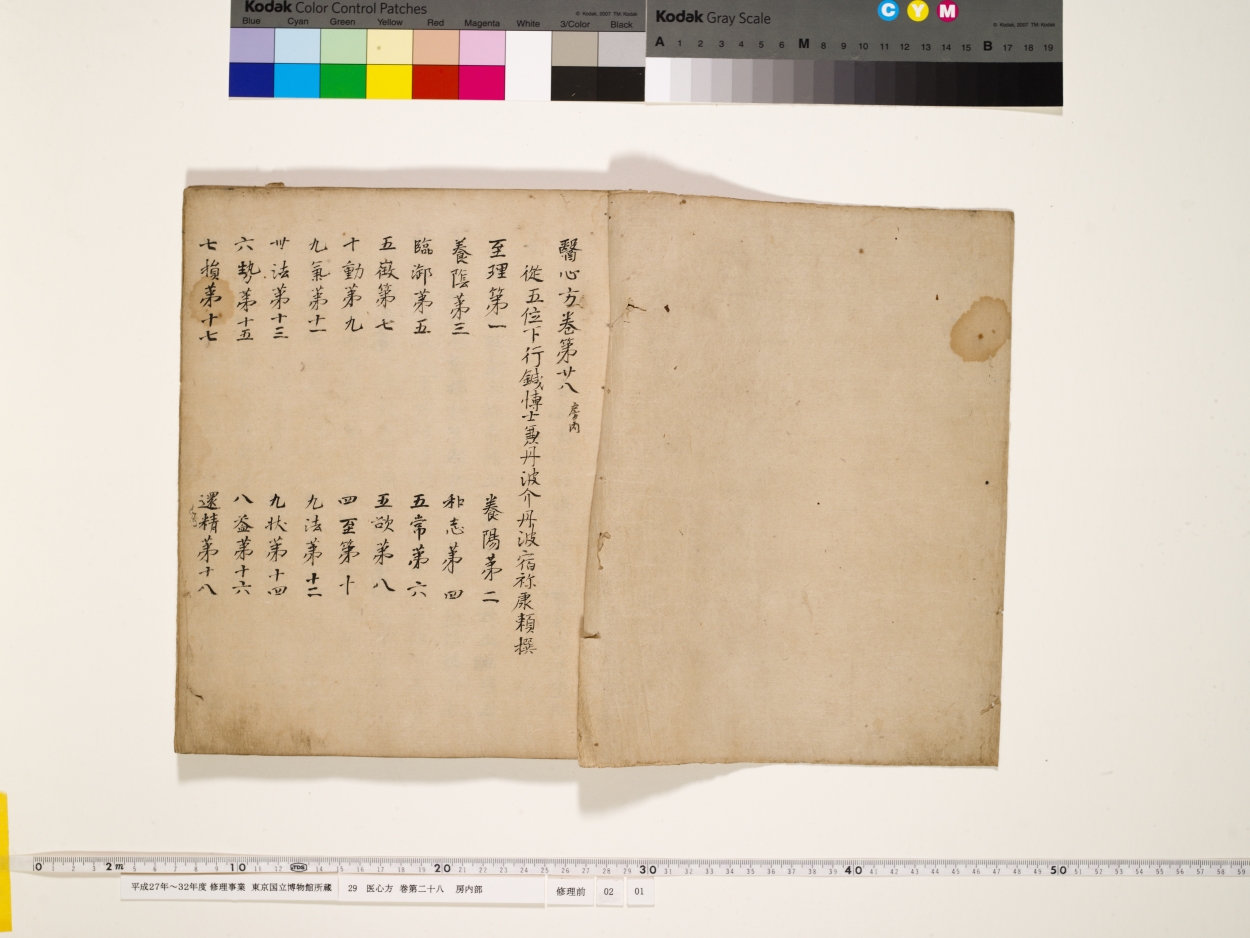 Kodak Color Control Patches
© Kodak, 2007 TM: Kodak
Blue Cyan Green Yellow Red Magenta White 3/Color Black
Kodak Gray Scale
C Y M
© Kodak, 2007 TM: Kodak
A 1 2 3 4 5 6 M 8 9 10 11 12 13 14 15 B 17 18 19
醫心方卷第廿八 房内
從五位下行鍼博士兼丹波介丹波宿祢康頼撰
至理第一 養陽第二
養陰第三 和志第四
臨御第五 五常第六
五徴第七 五欲第八
十動第九 四至第十
九氣第十一 九法第十二
卅法第十三 九状第十四
六勢第十五 八益第十六
七損第十七 還精第十八
平成27年～32年度 修理事業 東京国立博物館所蔵
29 医心方 巻第二十八 房内部
修理前 02 01